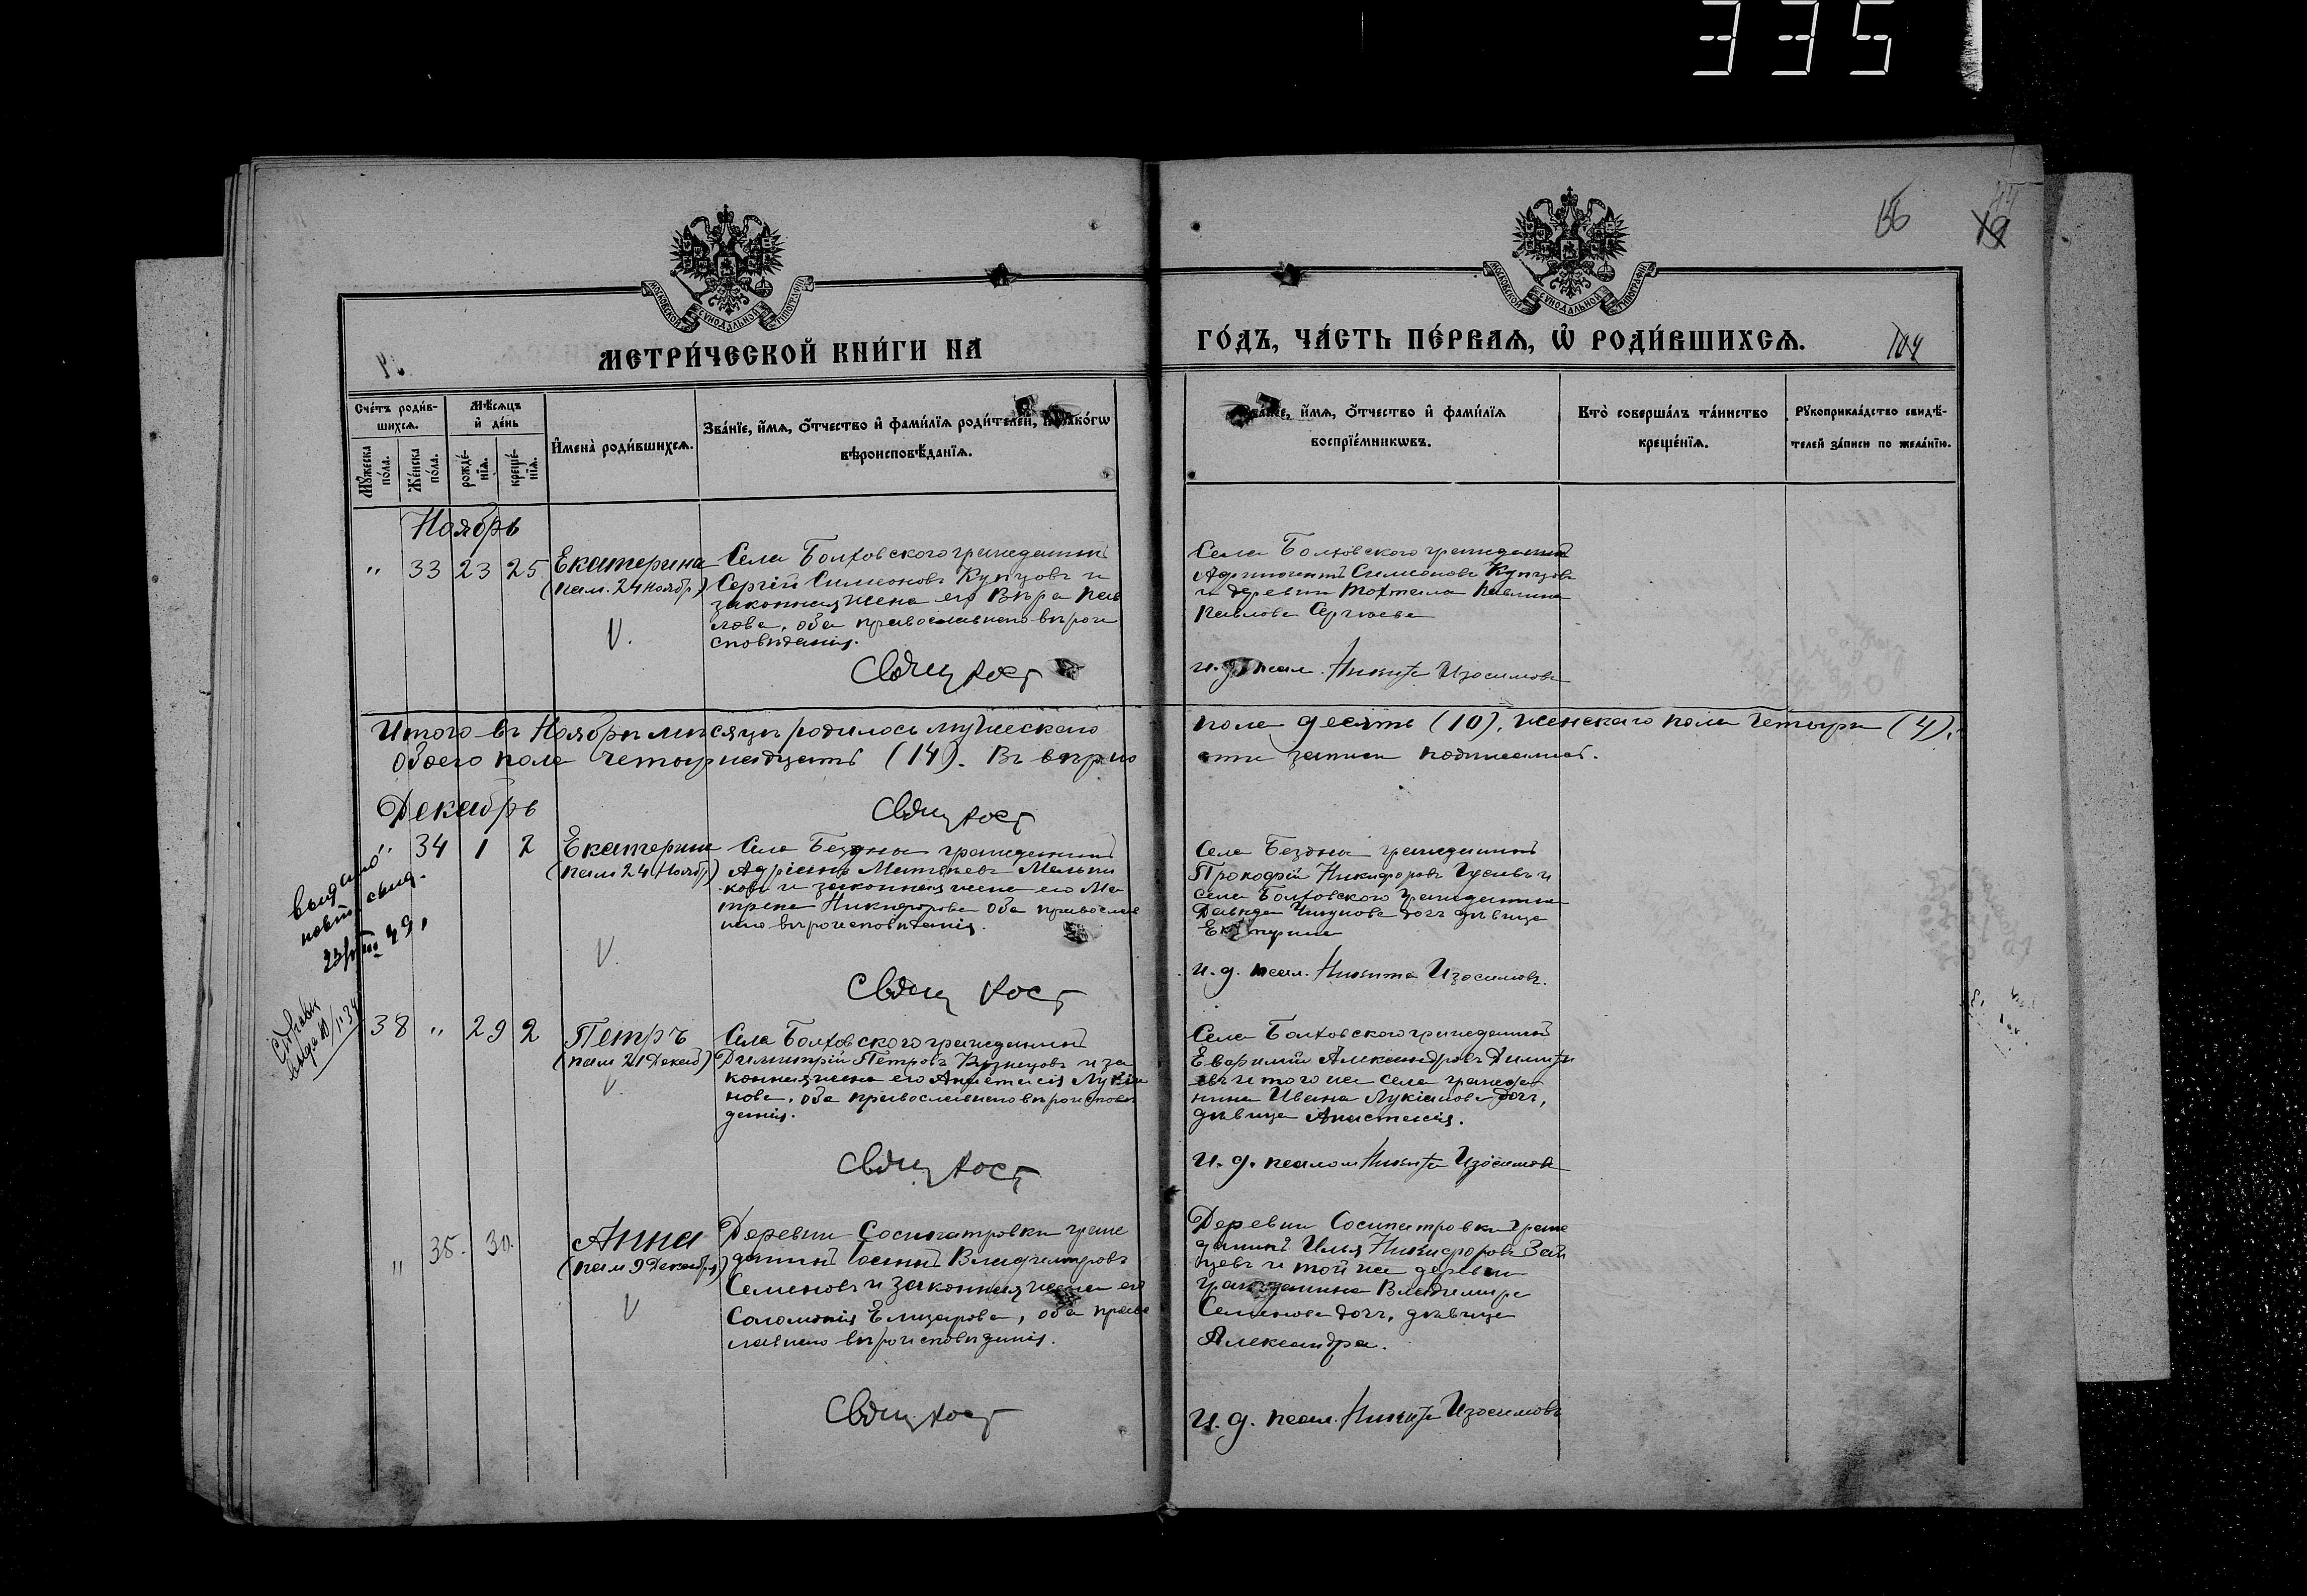 335
66
19
МОСКОВСКОЙ СѴНОДАЛЬНОЙ ТИПОГРАФІИ
МОСКОВСКОЙ СѴНОДАЛЬНОЙ ТИПОГРАФІИ
МЕТРИ́ЧЕСКОЙ КНИ́ГИ НА
ГО́ДЪ, ЧА́СТЬ ПЕ́РВАѦ, Ѡ҆ РОДИ́ВШИХСѦ.
104
Сче́тъ роди́в-
шихсѧ.
Мꙋ́жеска по́ла.
Же́нска по́ла.
Мѣ́сѧцъ и҆ де́нь
рожде́-нїѧ.
креще́-нїѧ.
И҆мена̀ роди́вшихсѧ.
Зва́нїе, и҆́мѧ, ѻ҆́тчество и҆ фамѝлїѧ роди́телей, и҆ како́гѡ
вѣроисповѣ́данїѧ.
Зва́нїе, и҆́мѧ, ѻ҆́тчество и҆ фамѝлїѧ
воспрїе́мникѡвъ.
Кто̀ соверша́лъ та́инство
креще́нїѧ.
Рꙋкоприкла́дство свидѣ́-
телей за́писи по жела́нїю.
Ноябрь
" 33 23 25 Екатерина
(пам. 24 Ноябр.)
Села Болховского гражданинъ
Сергій Симеоновъ Купцовъ и
законная жена его Вѣра Пав
лова, оба православнаго вѣрои
сповѣданія.
Села Болховского гражданинъ
Симеоновъ Купцовъ
и деревни
Павлова Сергеева
и. д. псал. Никита Изосимовъ
Итого въ Ноябрѣ мѣсяцѣ родилось мужескаго
пола десять (10), женскаго пола четыри (4),
обоего пола четырнадцать (14). Въ вѣрно
сти записи подписались.
Декабрь
" 34 1 2 Екатерина
(пам 24 Ноябр)
Села Бездны гражданинъ
Адріанъ Матвѣевъ Мельни
ковъ и законная жена его Ма
трена Никифорова оба православ
наго вѣроисповѣданія.
Села Бездна гражданинъ
Прокофій Никифоровъ Гусевъ и
села Болховского гражданина
Давида Чигунова дочь дѣвица
Екатерина
и. д. псал. Никита Изосимовъ.
выдано
новый свид.
38 " 29 2 Петръ
(пам 21 Декаб)
Села Болховского гражданинъ
Димитрій Петровъ Кузнецовъ и за
конная жена его Анастасія Лукія
нова, оба православнаго вѣроисповѣ
данія.
Села Болховского гражданинъ
Евфимій Александровъ Димитри
евъ и того же села гражда
нина Ивана Лукіанова дочь,
дѣвица Анастасія.
и. д. псалом Никита Изосимовъ
" 35. 30. Анна
(пам 9 Декабря)
Деревни Сосипатровки граж
данинъ Іоаннъ Владиміровъ
Семеновъ и законная жена его
Соломонія Елиазарова, оба право
славнаго вѣроисповѣданія.
Деревни Сосипатровки граж
данинъ Илья Никифоровъ Зай
цевъ и той же деревни
гражданина Владиміра
Семенова дочь, дѣвица
Александра.
и. д. псал. Никита Изосимовъ